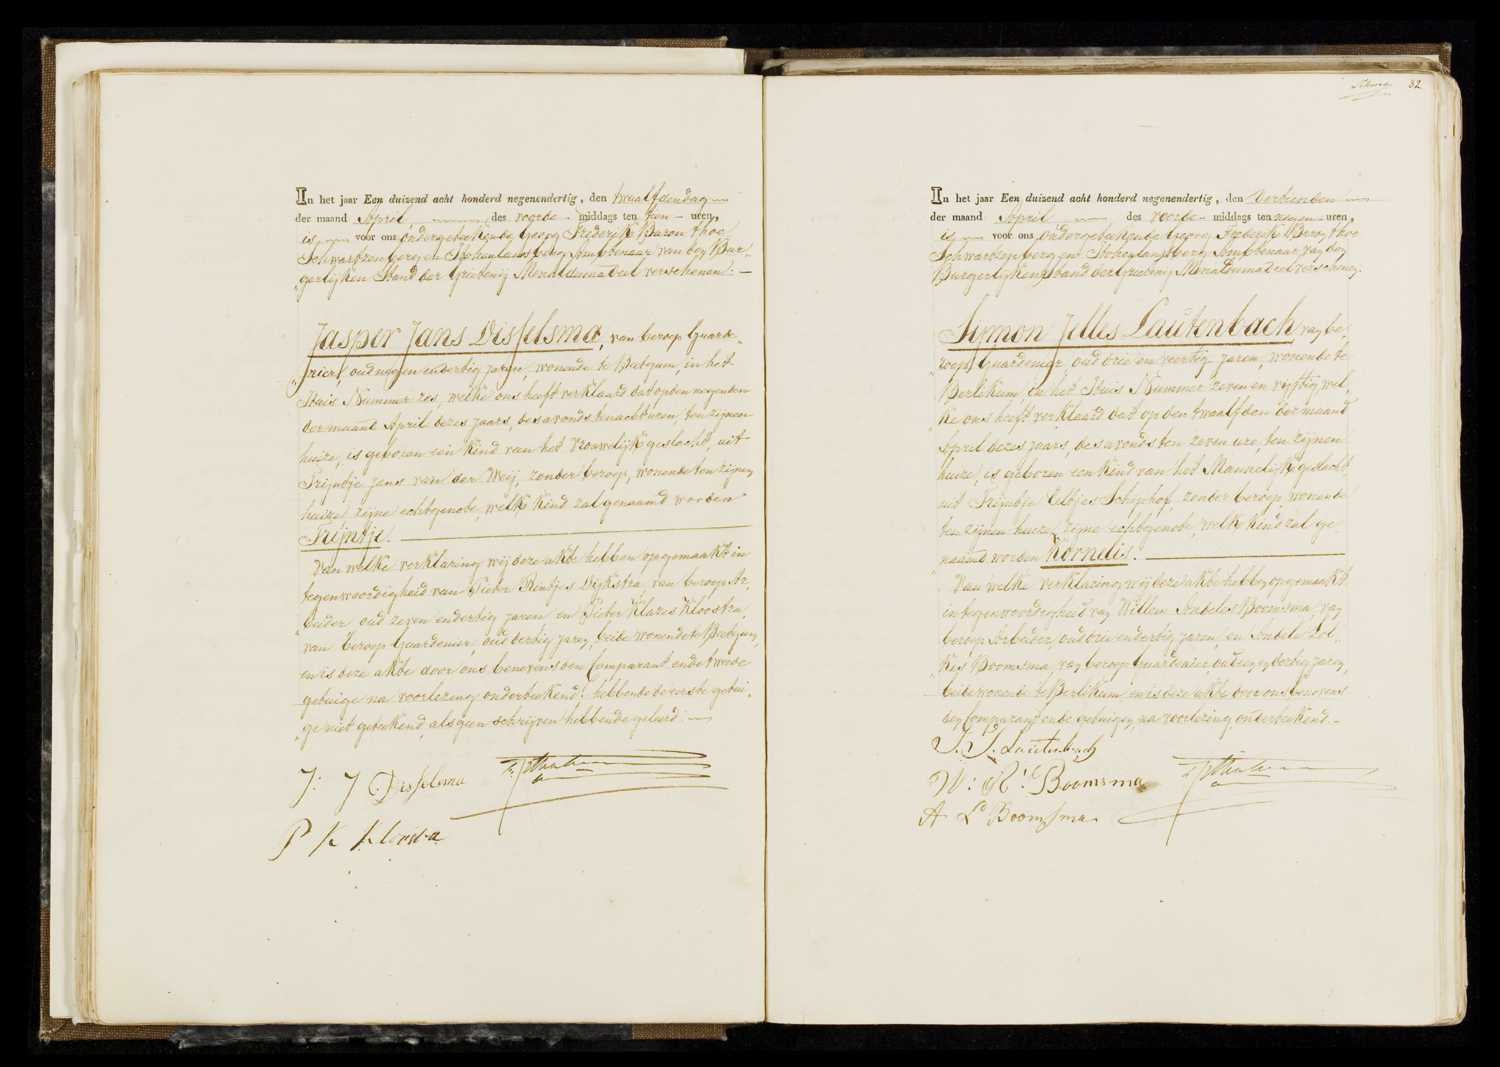 In het jaar Een duizend acht honderd negenendertig, den twaalfden dag
der maand April des voorde middags ten tien uren,
is voor ons ondergeteekende Georg Frederik Baron thoe
Schwartzenberg en Hohenlansberg Ambtenaar van den Bur-
gerlijken Stand der Grietenij Menaldumadeel verschenen:
Jasper Jans Disselsma, van beroep Guarde-
nier, oud negen en dertig jaren, wonende te Beetgum, in het
Huis Nummer zes, welke ons heeft verklaard dat op den negenden
der maand April dezes jaars, des avonds ten acht uren, ten zijnen
huize, is geboren een kind van het Vrouwelijk geslacht, uit
Trijntje Jans van der Weij, zonder beroep, wonende ten zijnen
huize, zijne echtgenote, welk kind zal genaamd worden
Trijntje.
Van welke verklaring wij deze akte hebben opgemaakt in
tegenwoordigheid van Pieter Rientjes Dijkstra, van beroep Ar-
beider, oud zeven en dertig jaren en Pieter Klazes Kloostra,
van beroep Guardenier, oud dertig jaren, beide wonende te Beetgum,
en is deze akte door ons benevens den Comparant en de tweede
getuige na voorlezing onderteekend, hebbende de eerste getui-
ge niet geteekend, als geen schrijven hebbende geleerd.
J: J Disselsma
P K Kloostra
32
In het jaar Een duizend acht honderd negenendertig, den dertienden
der maand April des voorde middags ten negen uren,
is voor ons ondergeteekende Georg Frederik Baron thoe
Schwartzenberg en Hohenlansberg Ambtenaar van den
Burgerlijken Stand der Grietenij Menaldumadeel verschenen:
Symon Jelles Lautenbach, van be-
roep Guardenier, oud drie en veertig jaren, wonende te
Berlikum, in het Huis Nummer zeven en vijftig, wel-
ke ons heeft verklaard dat op den twaalfden der maand
April dezes jaars, des avonds ten zeven ure, ten zijnen
huize, is geboren een kind van het Mannelijk geslacht,
uit Trijntje Eeltjes Schiphof, zonder beroep, wonende
ten zijnen huize, zijne echtgenote, welk kind zal ge-
naamd worden Kornelis.
Van welke verklaring wij deze akte hebben opgemaakt
in tegenwoordigheid van Willem Boomsma, van
beroep Arbeider, oud drie en dertig jaren, en
Boomsma, van beroep Guardenier, oud dertig jaren,
beide wonende te Berlikum, en is deze akte door ons benevens
den Comparant en de getuigen, na voorlezing onderteekend.
S. J. Lautenbach
W: Boomsma
A Boomsma